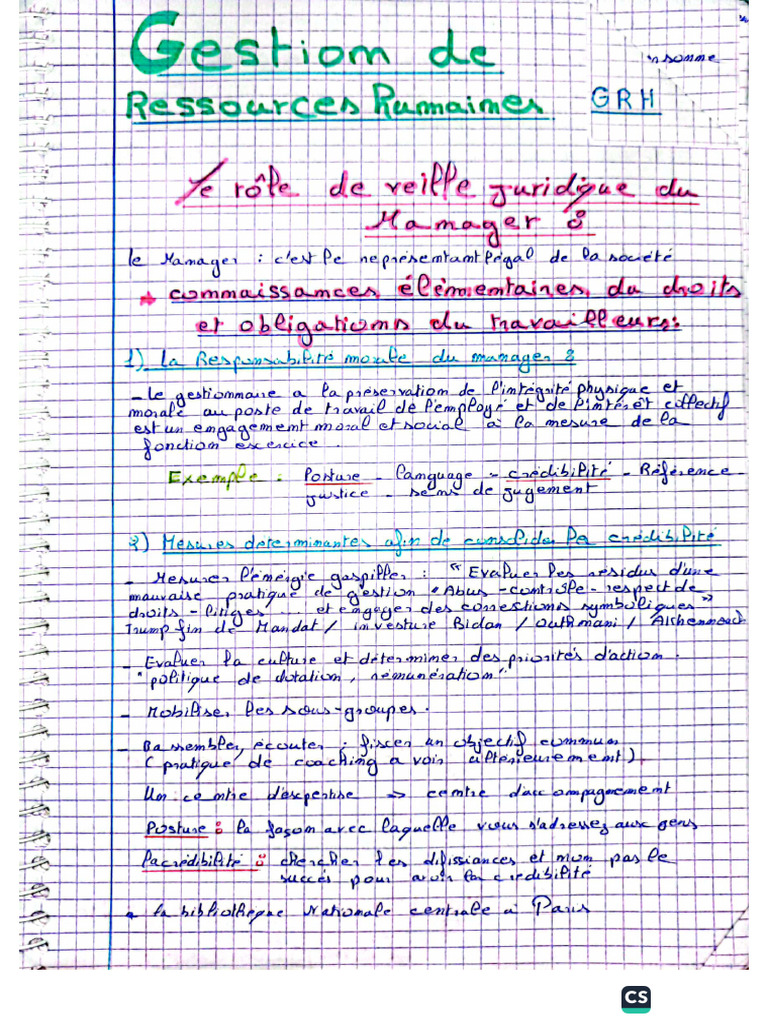 Gestion de
Ressources Humaines
GRH
Le rôle de veille juridique du
Manager :
le Manager : c'est le représentant légal de la société
connaissances élémentaires du droits
et obligations du travailleurs:
1) La Responsabilité morale du manager :
- Le gestionnaire a la préservation de l'intégrité physique et
morale au poste de travail de l'employé et de l'intérêt collectif
est un engagement moral et social à la mesure de la
fonction exercice.
Exemple : Posture - language - crédibilité - Référence -
justice - sens de jugement
2) Mesures déterminantes afin de consolider la crédibilité
- Mesurer l'énergie gaspiller : "Evaluer les résidus d'une
mauvaise pratique de gestion "Abus - contrôle - respect de
droits - litiges ... et engager des corrections symboliques"
Trump fin de Mandat / investure Bidan / outhmani /
- Evaluer la culture et déterminer des priorités d'action.
"politique de dotation, rémunération"
- Mobiliser les sous-groupes.
- Rassembler, écouter ; fixer un objectif commun
(pratique de coaching a voir ultérieurement).
Un centre d'expertise => centre d'accompagnement
Posture : la façon avec laquelle vous s'adressez aux gens
la crédibilité : chercher les difissiances et non pas le
succés pour avoir la crédibilité
la bibliothèque Nationale centrale à Paris
CS